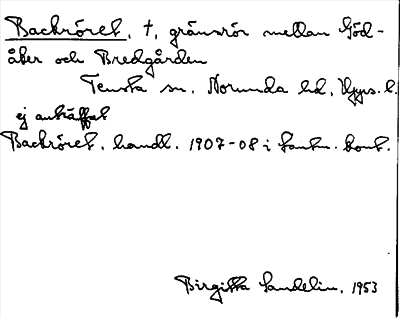 Backröret, †, gränsrör mellan Göd-
åker och Bredgården
Tensta sn, Norunda hd, Upps. l.
ej anträffat
Backröret. handl. 1907-08 i Lantm. kont.
Birgitta Sandelin. 1953